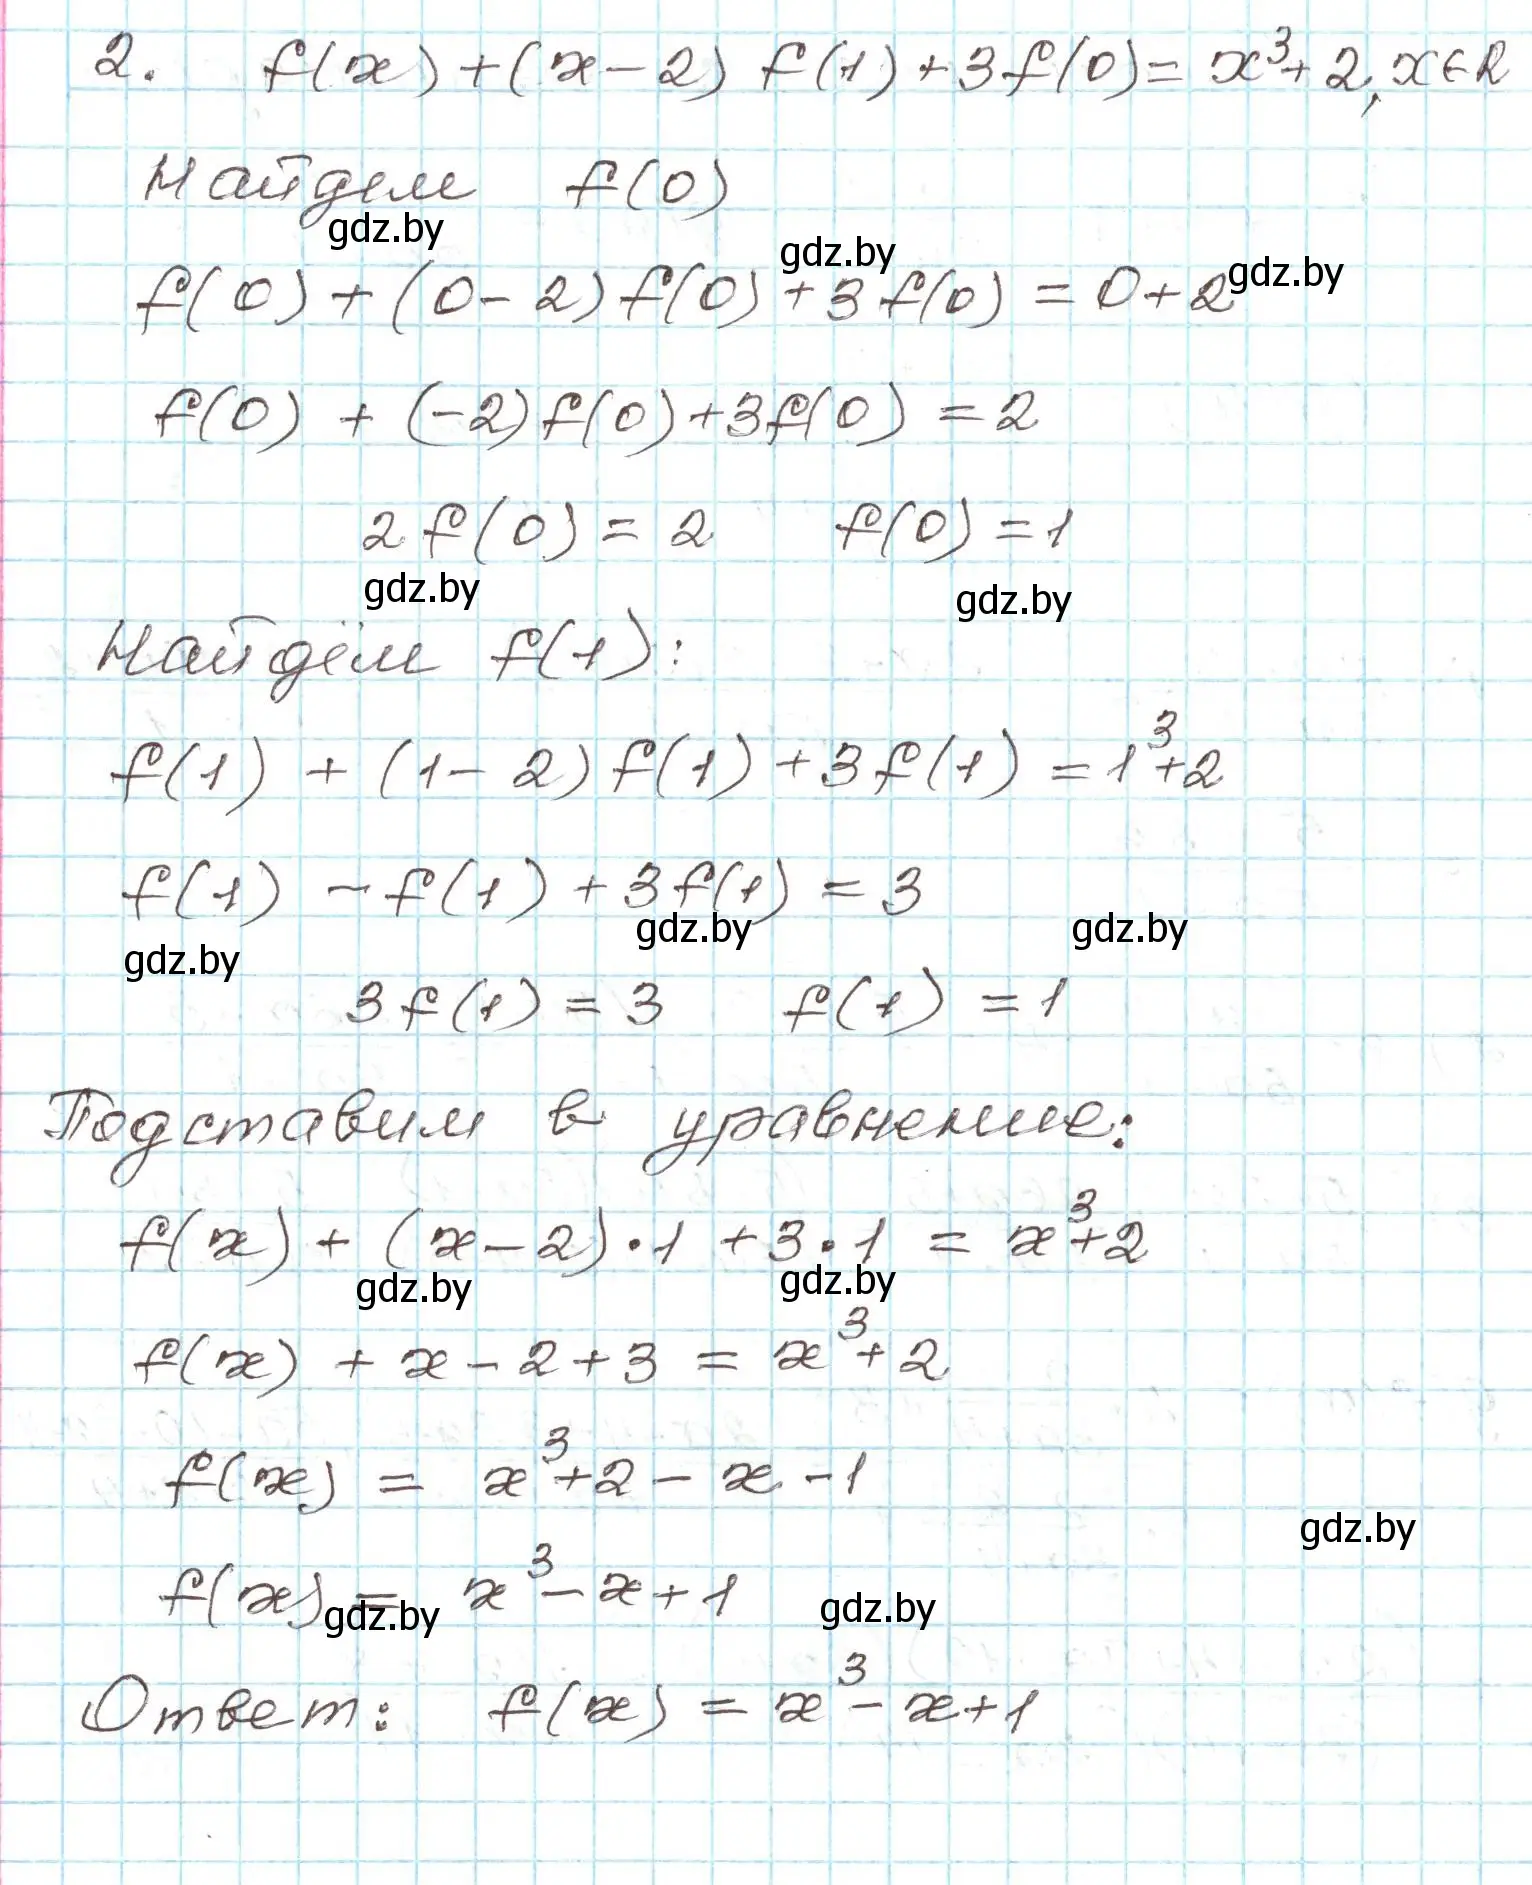 2. f(x)+(x-2) f(1)+3f(0)=x³+2, x∈R
Найдем f(0)
gdz.by
gdz.by
gdz.by
f(0)+(0-2)f(0)+3f(0)=0+2
f(0)+(-2)f(0)+3f(0)=2
2f(0)=2 f(0)=1
gdz.by
gdz.by
Найдём f(1):
f(1)+(1-2)f(1)+3f(1)=1³+2
f(1)-f(1)+3f(1)=3
gdz.by
gdz.by
gdz.by
3f(1)=3 f(1)=1
Подставим в уравнение:
f(x)+(x-2)·1+3·1=x³+2
gdz.by
gdz.by
f(x)+x-2+3=x³+2
f(x)=x³+2-x-1
gdz.by
f(x)=x³-x+1
gdz.by
gdz.by
Ответ: f(x)=x³-x+1